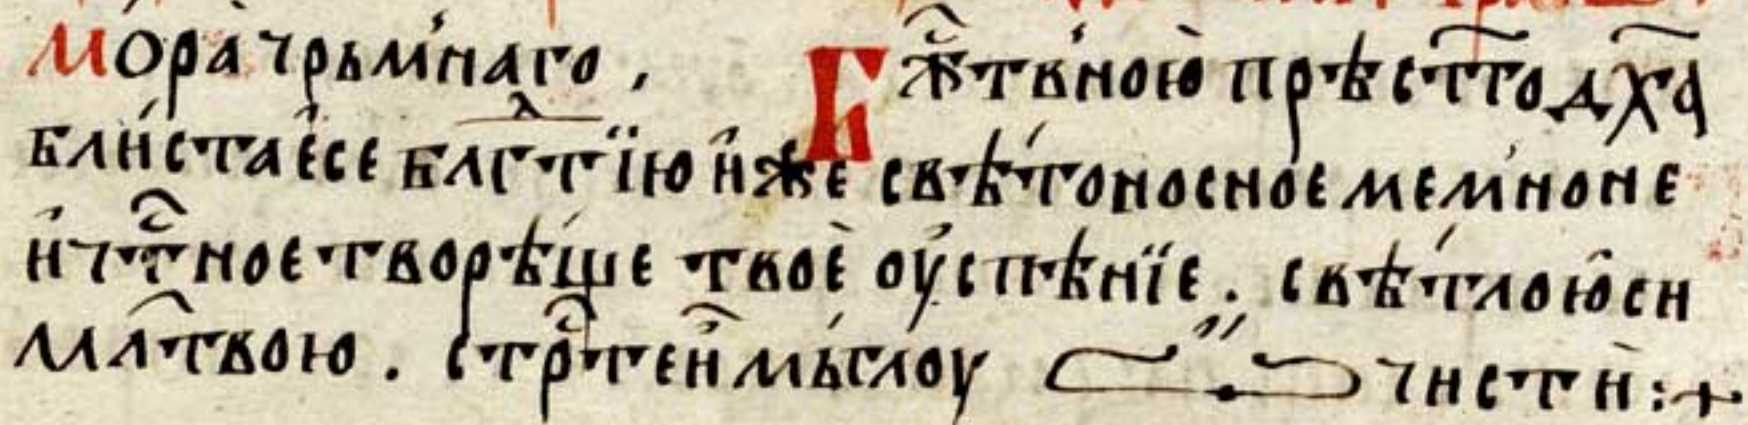 мора̀ чрьмнаго , Бж҃тв́ною̀ прѣст҃го дх҃а
блиⷭ҇таѐсе блгⷣтїю и҆же свѣ́тоносное меминоне
и҆ чт҃ное творѣ́ше твоѐ оу҆спѣнїе . свѣ́тлою҆ си
мл҃твою . стрⷭ҇теи҆ мь́глоу чисти̏ :+